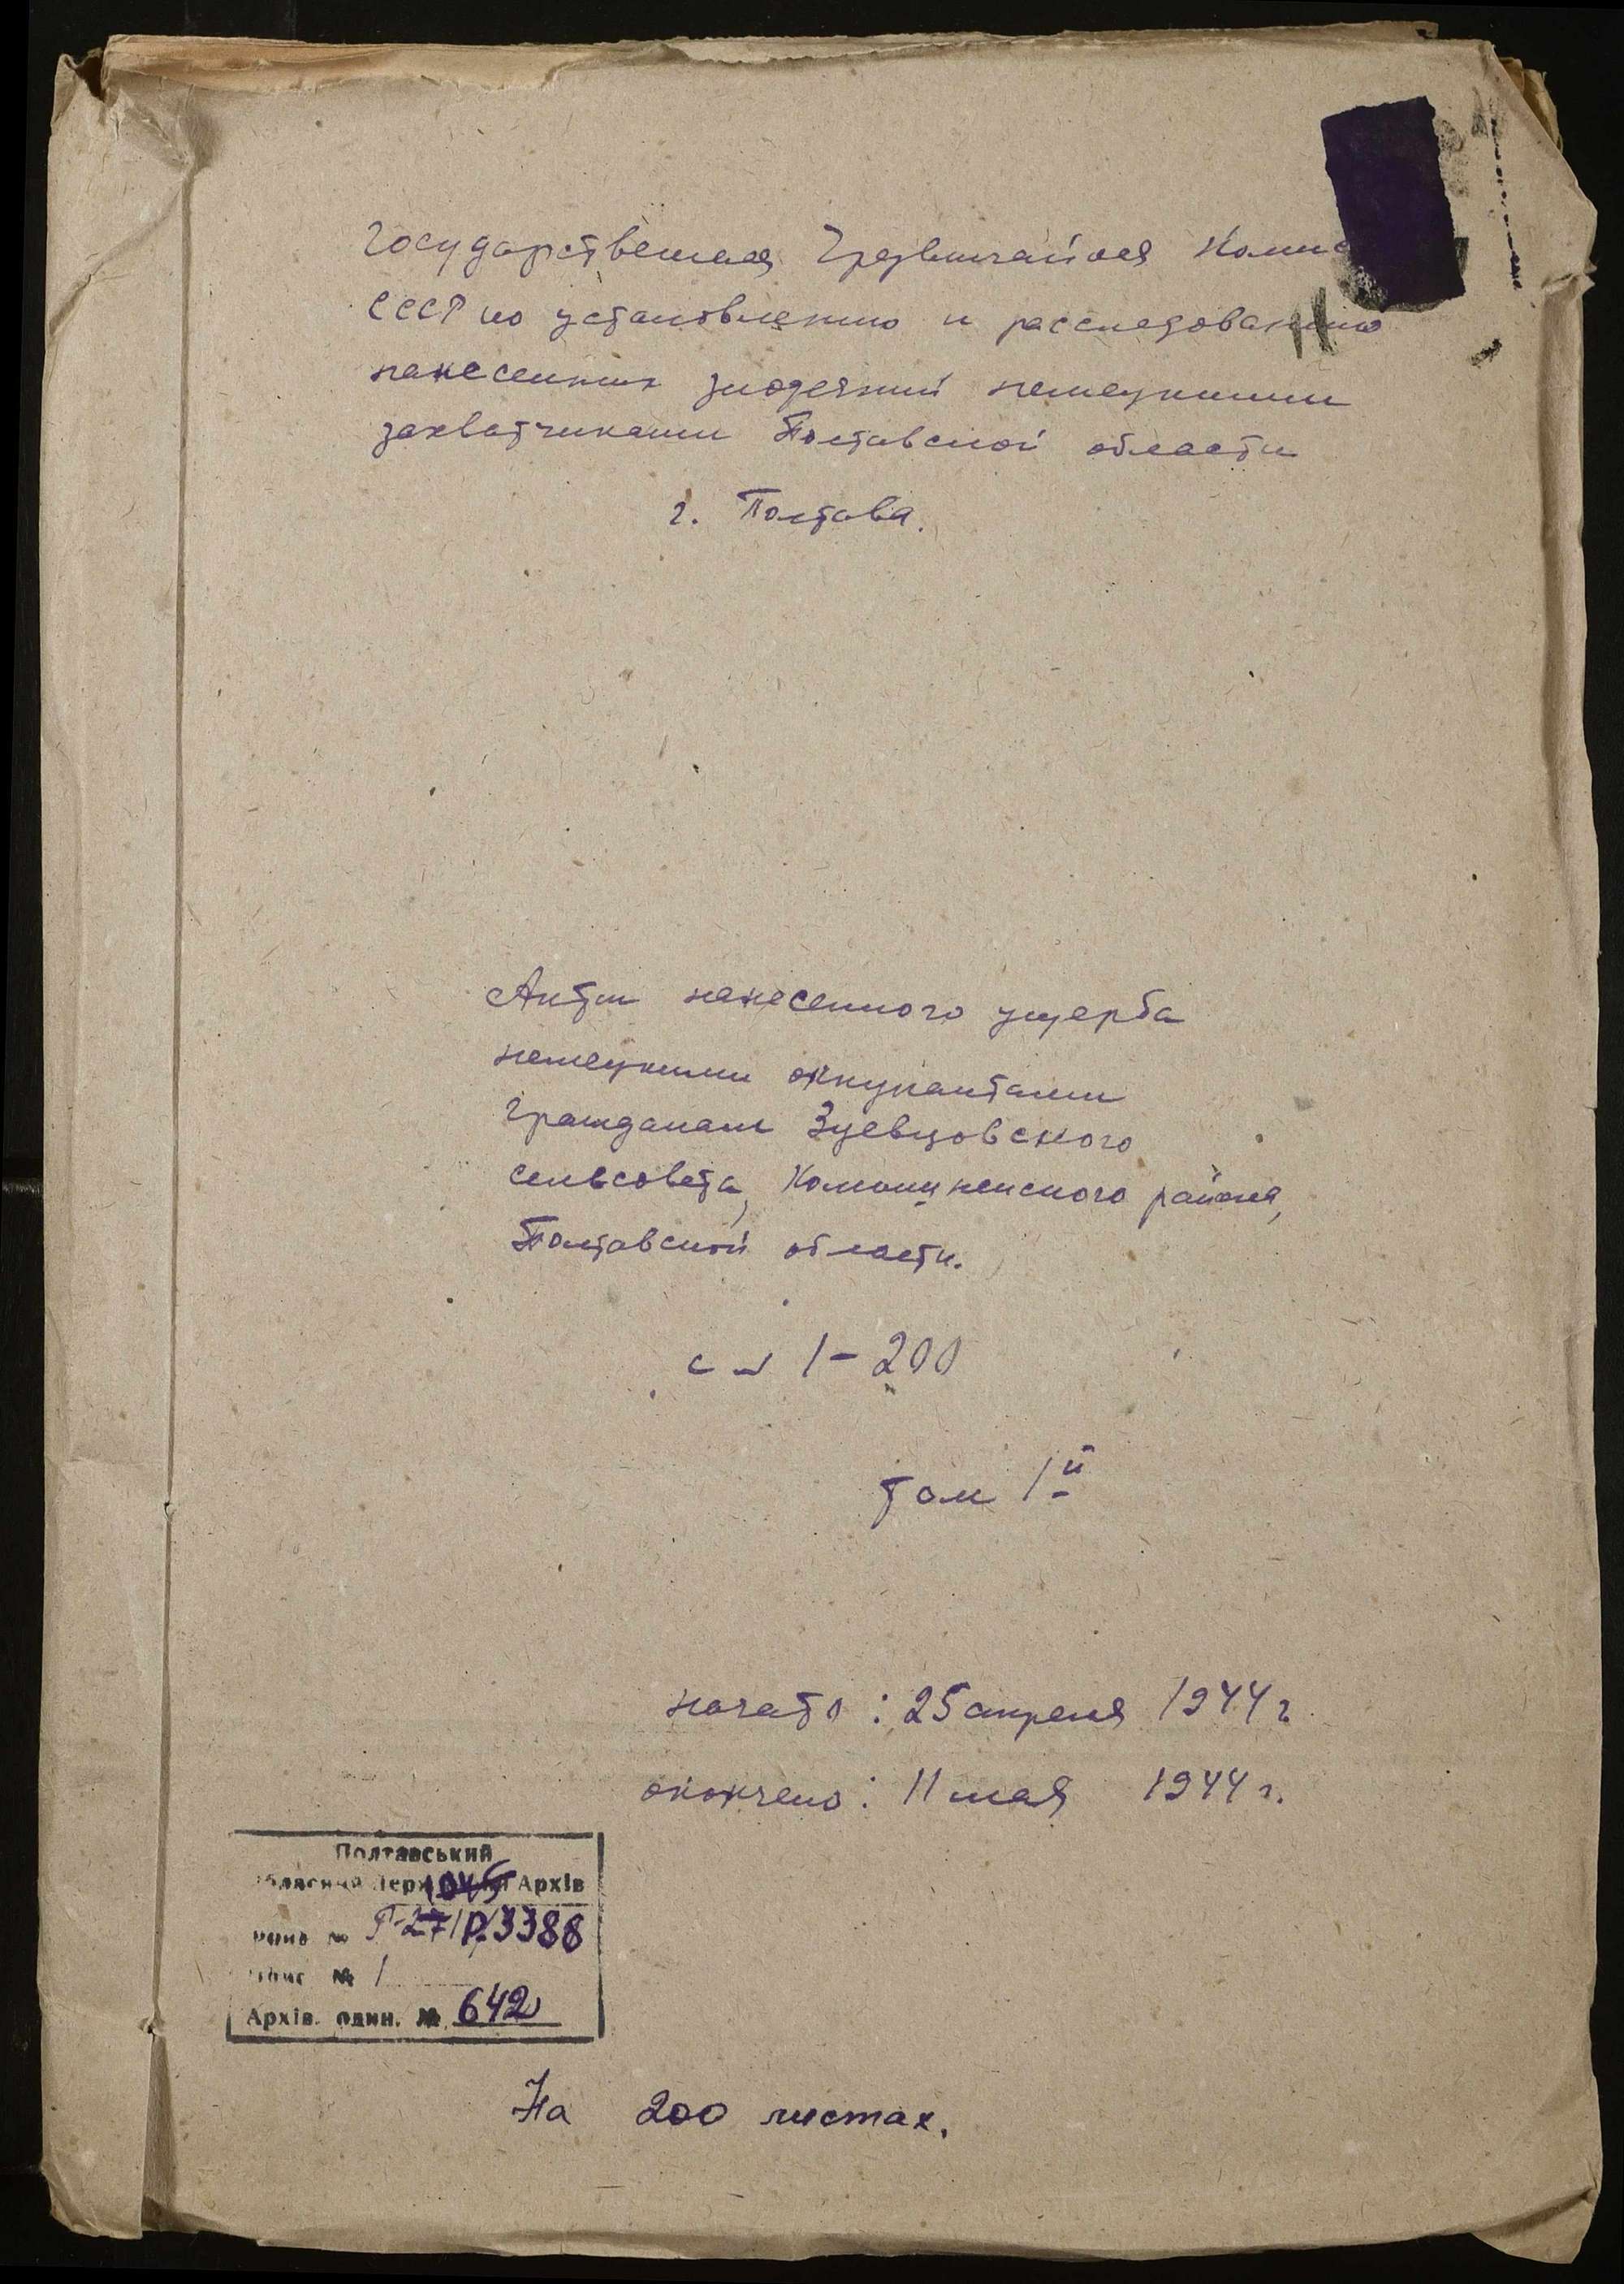 Государственная Чрезвычайная Комис
СССР по установлению и расследованию
нанесенных злодеяний немецкими
захватчиками Полтавской области
г. Полтава.
Акты нанесенного ущерба
немецкими оккупантами
гражданам Зуевцовского
сельсовета, Комышнянского района,
Полтавской области.
с № 1-200
том 1й
начато: 25 апреля 1944 г
окончено: 11 мая 1944 г.
Полтавський
Архів
№ Р-3388
№ 1
Архів. один. № 642
На 200 листах.